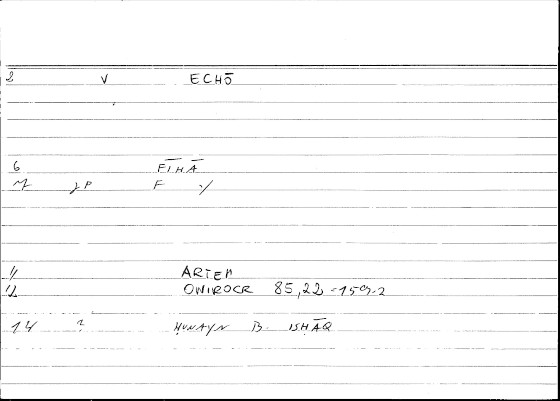 2 V ECHŌ
6 FĪHĀ
F
11 ARTEM
12 ONIROCR 85,22 - 159.2
14 ? ḤUNAYN B. ISḤĀQ